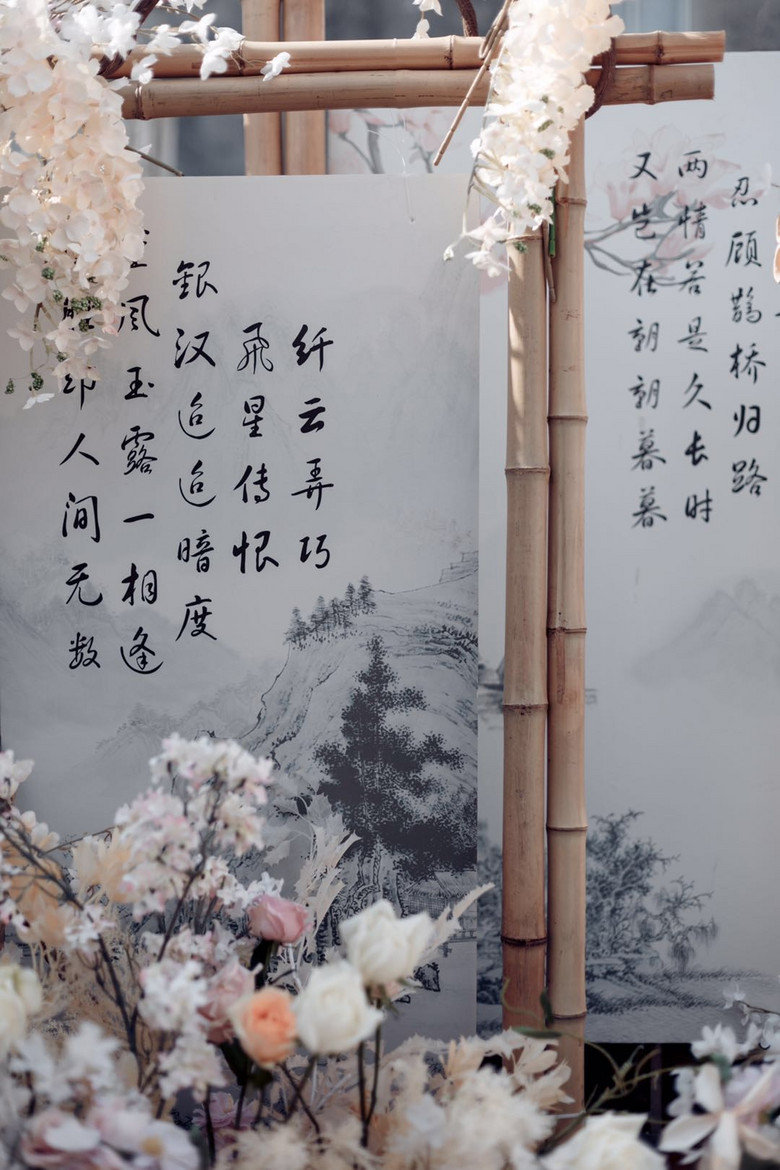 纤云弄巧
飛星传恨
銀汉迢迢暗度
风玉露一相逢
却人间无数
忍顾鹊桥归路
两情若是久长时
又岂在朝朝暮暮